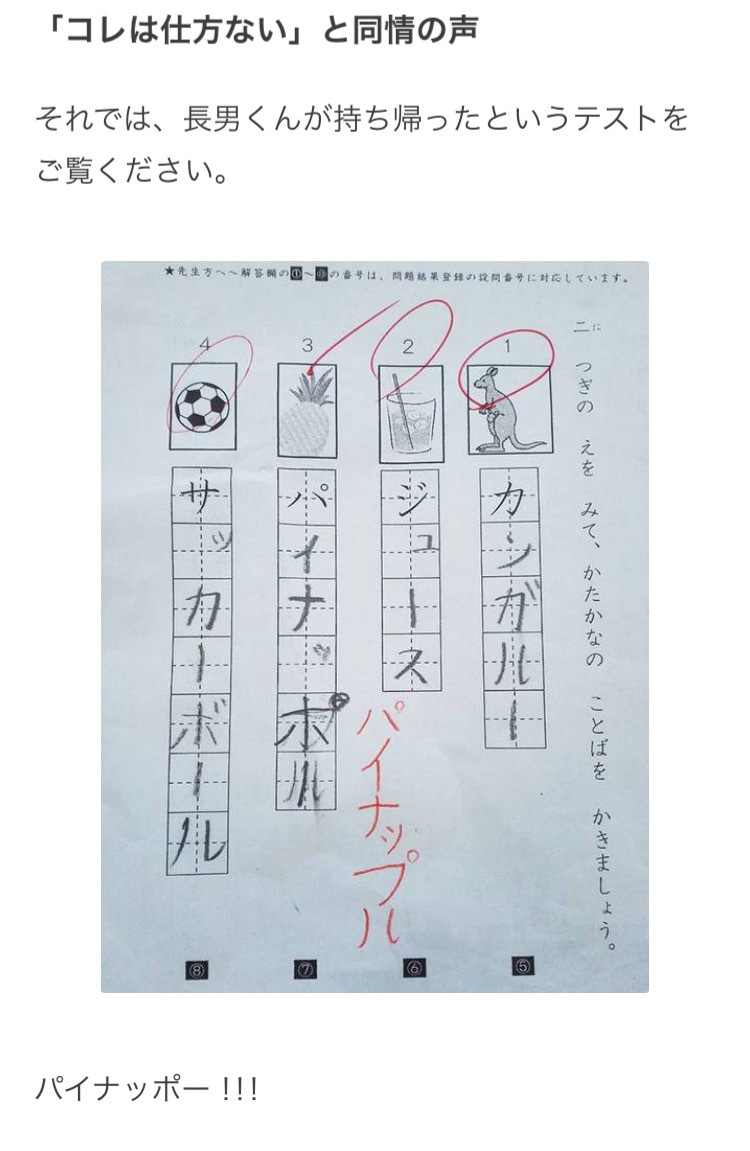 「コレは仕方ない」と同情の声
それでは、長男くんが持ち帰ったというテストを
ご覧ください。
★先生方へ〜解答欄の①〜⑩の番号は、問題結果登録の設問番号に対応しています。
二に
つぎの えを みて、かたかなの ことばを かきましょう。
1
カンガルー
⑤
2
ジュース
⑥
3
パイナッポル
パイナップル
⑦
4
サッカーボール
⑧
パイナッポー!!!